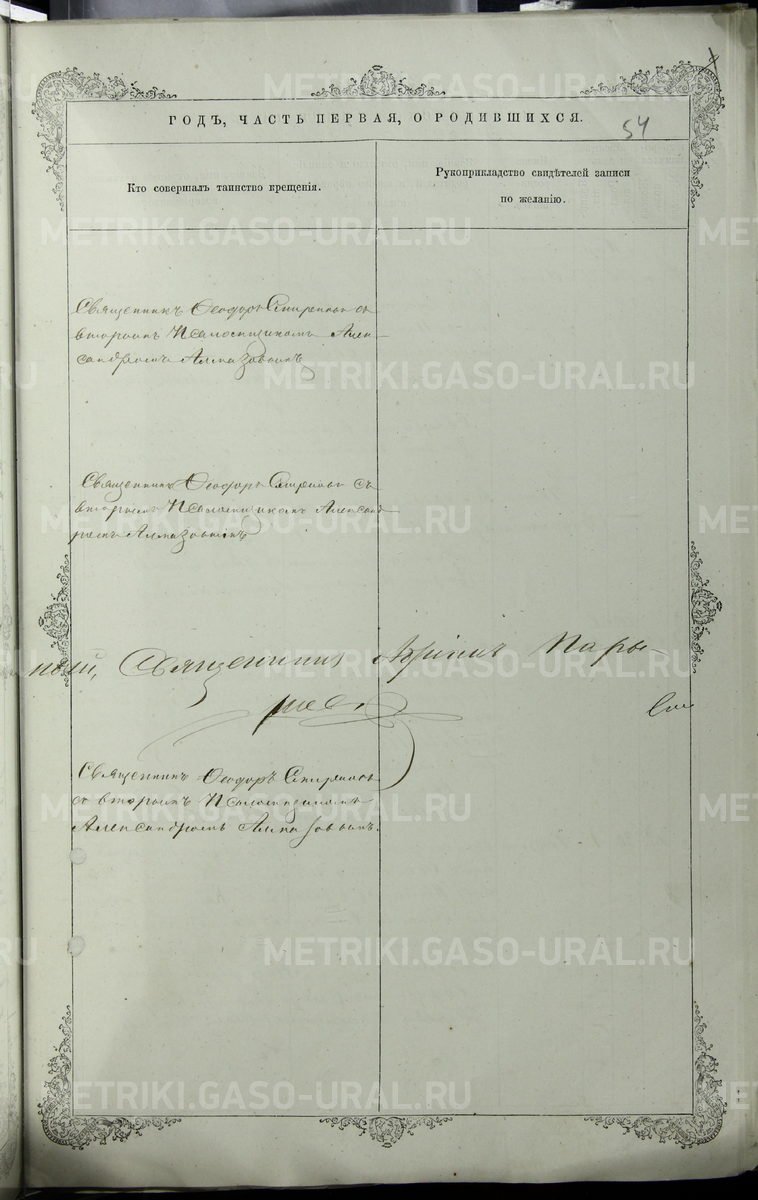 ГОДЪ, ЧАСТЬ ПЕРВАЯ, О РОДИВШИХСЯ.
54
Кто совершалъ таинство крещенія.
Рукоприкладство свидѣтелей записи
по желанію.
Священникъ Ѳеодоръ Спиринъ съ
вторымъ Псаломщикомъ Алек-
сандромъ Алмазовымъ
Священникъ Ѳеодоръ Спиринъ съ
вторымъ Псаломщикомъ Александ-
ромъ Алмазовымъ
ной, Священникъ Пары-
шев,
Священникъ Ѳеодоръ Спиринъ
съ вторымъ Псаломщикомъ
Александромъ Алмазовымъ.
METRIKI.GASO-URAL.RU